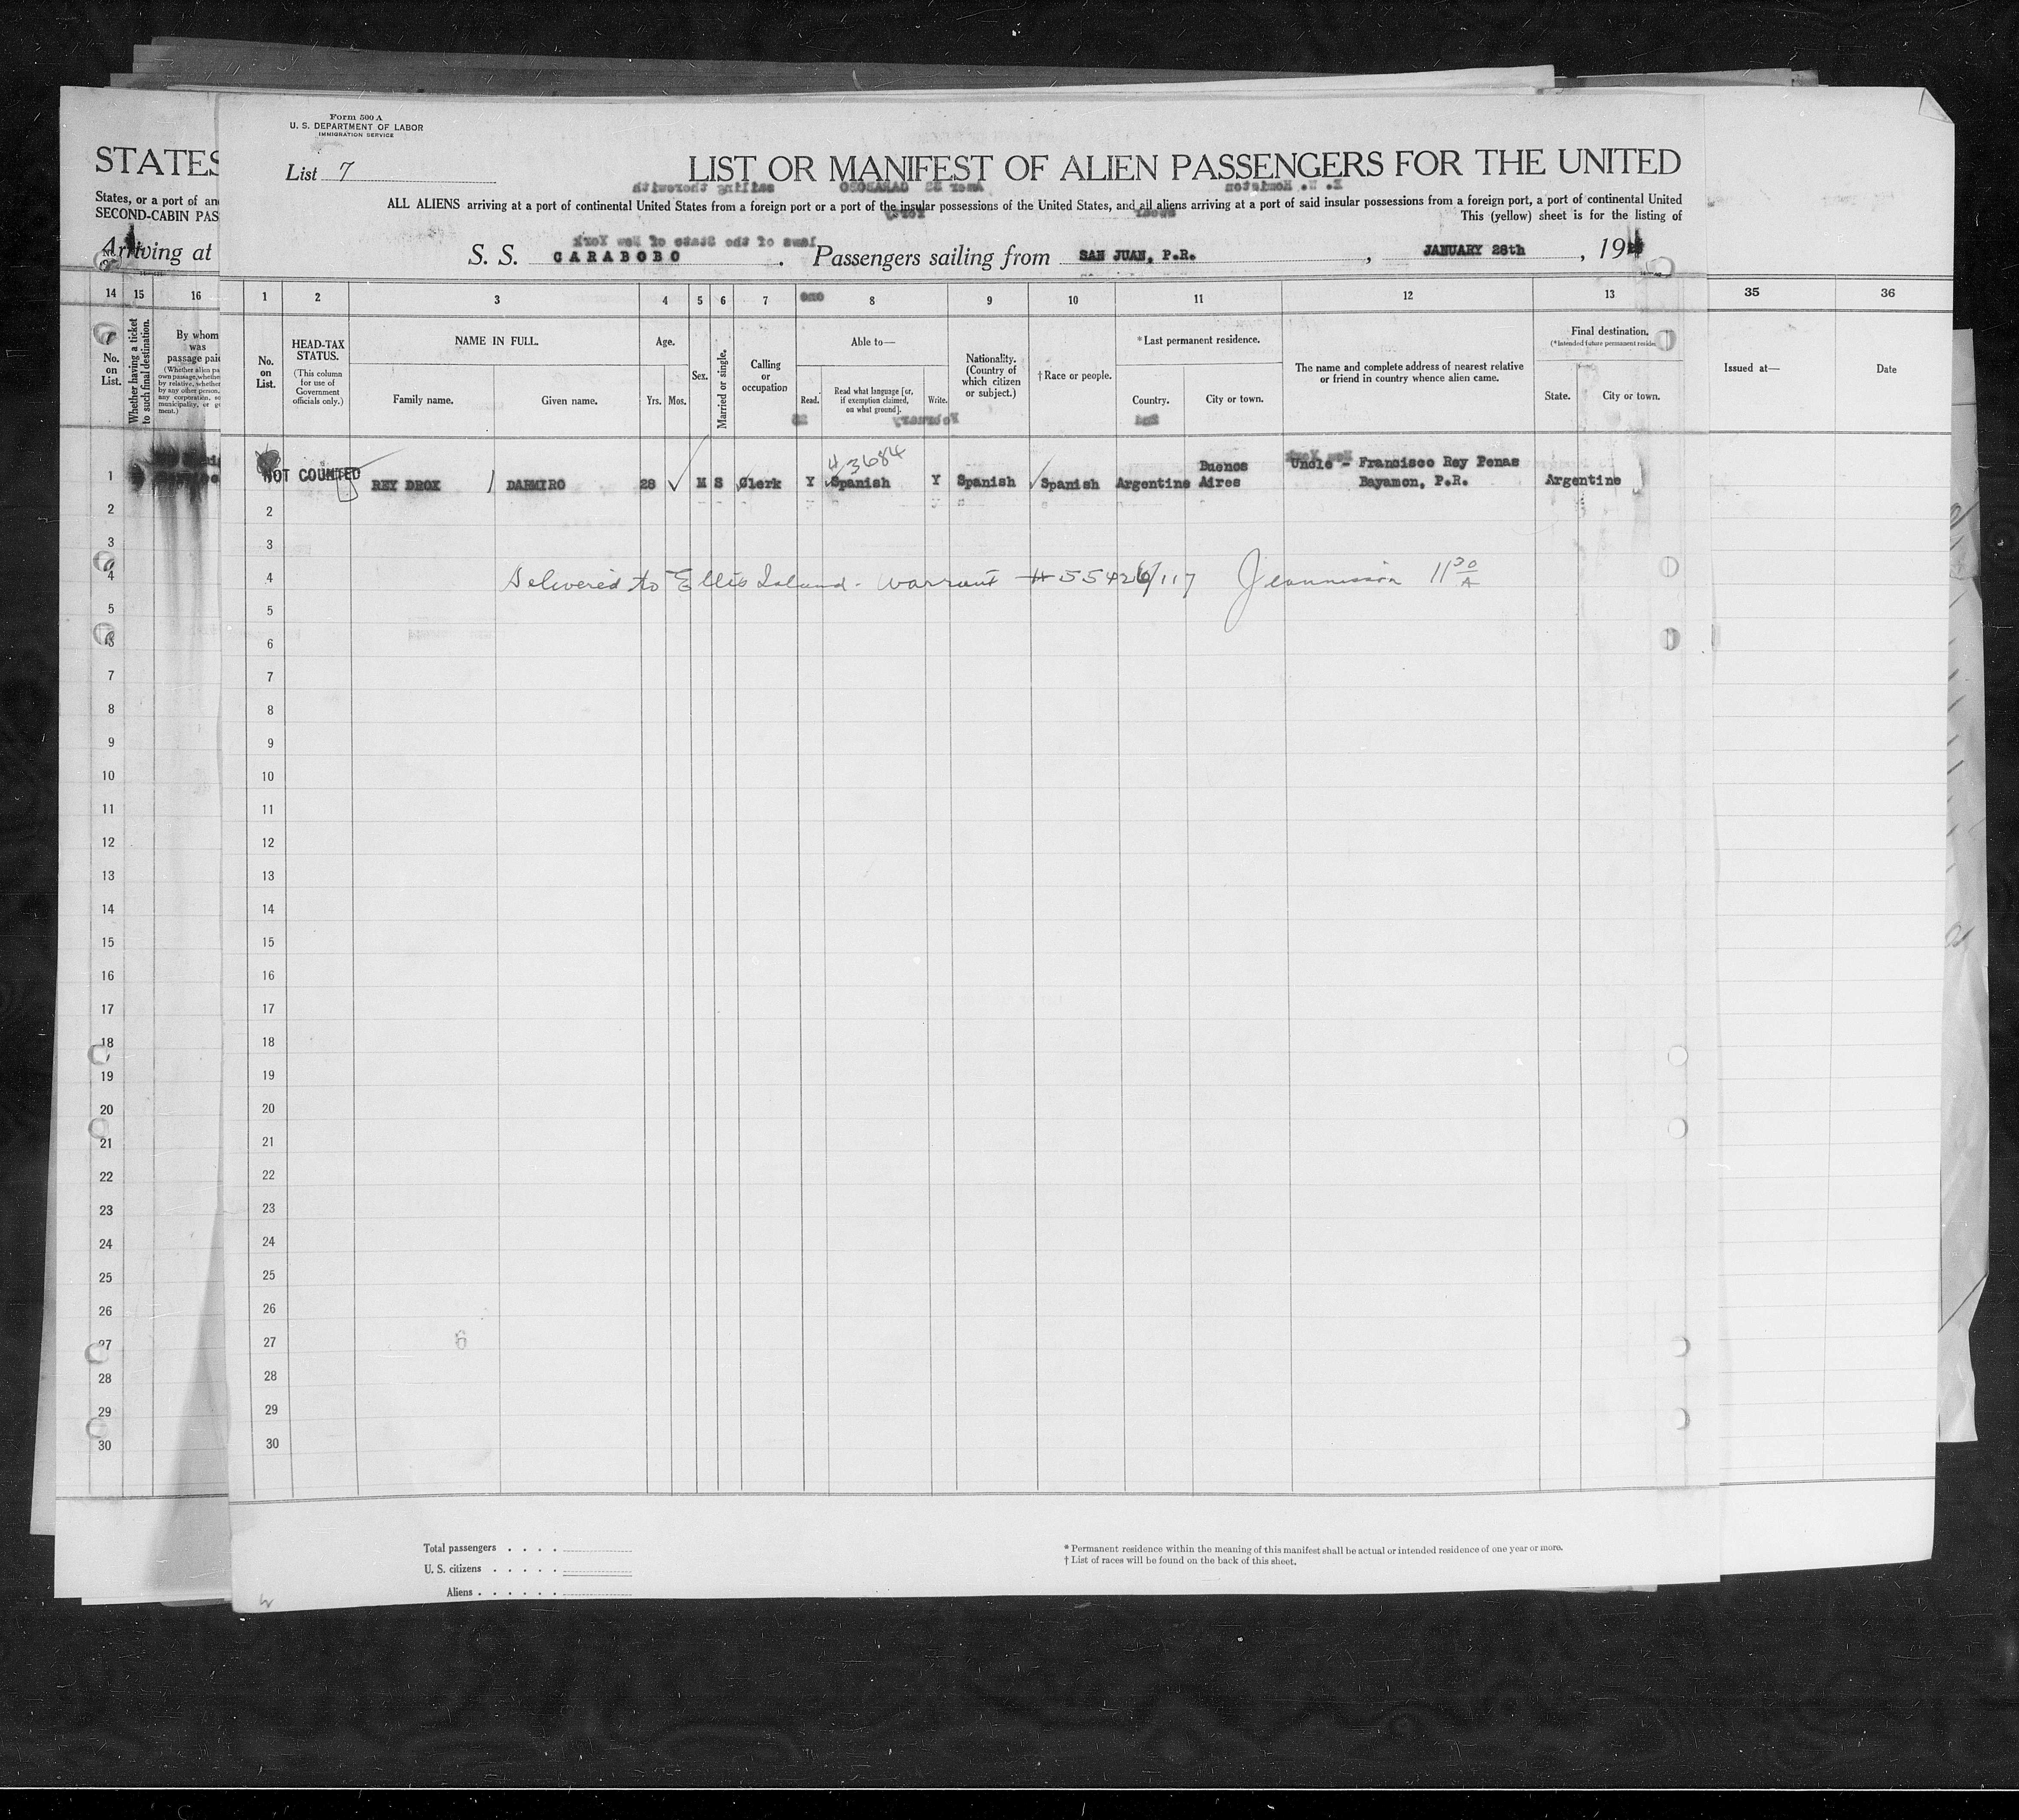 Form 500 A
U. S. DEPARTMENT OF LABOR
IMMIGRATION SERVICE
List 7
LIST OR MANIFEST OF ALIEN PASSENGERS FOR THE UNITED
STATES
ALL ALIENS arriving at a port of continental United States from a foreign port or a port of the insular possessions of the United States, and all aliens arriving at a port of said insular possessions from a foreign port, a port of continental United
States, or a port of
SECOND-CABIN PAS
This (yellow) sheet is for the listing of
Arriving at
S. S. CARABOBO. Passengers sailing from SAN JUAN, P.R., JANUARY 28th, 19
14 15 16
1 2 3 4 5 6 7 8 9 10 11 12 13 35 36
No. on List.
Whether having a ticket to such final destination.
By whom was passage paid
No. on List.
HEAD-TAX STATUS.
(This column for use of Government officials only.)
NAME IN FULL.
Family name.
Given name.
Age.
Yrs. Mos.
Sex.
Married or single.
Calling or occupation
Able to—
Read.
Read what language [or, if exemption claimed, on what ground].
Write.
Nationality. (Country of which citizen or subject.)
†Race or people.
*Last permanent residence.
Country.
City or town.
The name and complete address of nearest relative or friend in country whence alien came.
Final destination.
(*Intended future permanent reside
State.
City or town.
Issued at—
Date
43684
1 NOT COUNTED REY DROX DARMIRO 28 M S Clerk Y Spanish Y Spanish Spanish Argentine Buenos Aires Uncle - Francisco Rey Penas Argentine
Bayamon, P.R.
2
3
4 Delivered to Ellis Island - Warrant # 55426/117 11 30 A
5
6
7
8
9
10
11
12
13
14
15
16
17
18
19
20
21
22
23
24
25
26
27
28
29
30
Total passengers . . . .
U. S. citizens . . . . .
Aliens . . . . . .
* Permanent residence within the meaning of this manifest shall be actual or intended residence of one year or more.
† List of races will be found on the back of this sheet.